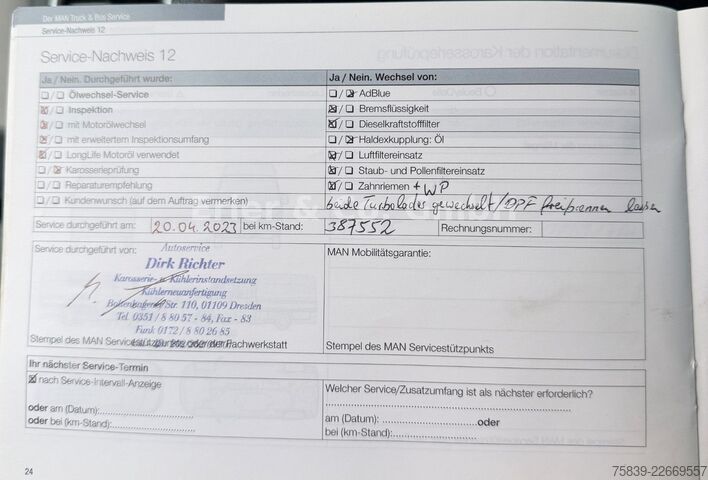 Der MAN Truck & Bus Service
Service-Nachweis 12
Service-Nachweis 12
Ja / Nein. Durchgeführt wurde:
☐/☐ Ölwechsel-Service
☒/☐ Inspektion
☒/☐ mit Motorölwechsel
☒/☐ mit erweitertem Inspektionsumfang
☒/☐ LongLife Motoröl verwendet
☐/☒ Karosserieprüfung
☐/☐ Reparaturempfehlung
☐/☐ Kundenwunsch (auf dem Auftrag vermerken)
Ja / Nein. Wechsel von:
☐/☒ AdBlue
☒/☐ Bremsflüssigkeit
☒/☐ Dieselkraftstofffilter
☐/☒ Haldexkupplung: Öl
☒/☐ Luftfiltereinsatz
☒/☐ Staub- und Pollenfiltereinsatz
☒/☐ Zahnriemen + WP
beide Turbolader gewechselt / DPF freibrennen lassen
Service durchgeführt am: 20.04.2023 bei km-Stand: 387552 Rechnungsnummer:
Service durchgeführt von:
Autoservice
Dirk Richter
Karosserie- u. Kühlerinstandsetzung
Kühlerneuanfertigung
Str. 110, 01109 Dresden
Tel. 0351 / 8 80 57 - 84, Fax - 83
Funk 0172 / 8 80 26 85
Stempel des MAN Servicestützpunkts oder der Fachwerkstatt
MAN Mobilitätsgarantie:
Stempel des MAN Servicestützpunkts
Ihr nächster Service-Termin
☒ nach Service-Intervall-Anzeige
oder am (Datum):
oder bei (km-Stand):
Welcher Service/Zusatzumfang ist als nächster erforderlich?
am (Datum): oder
bei (km-Stand):
24
75839-22669557